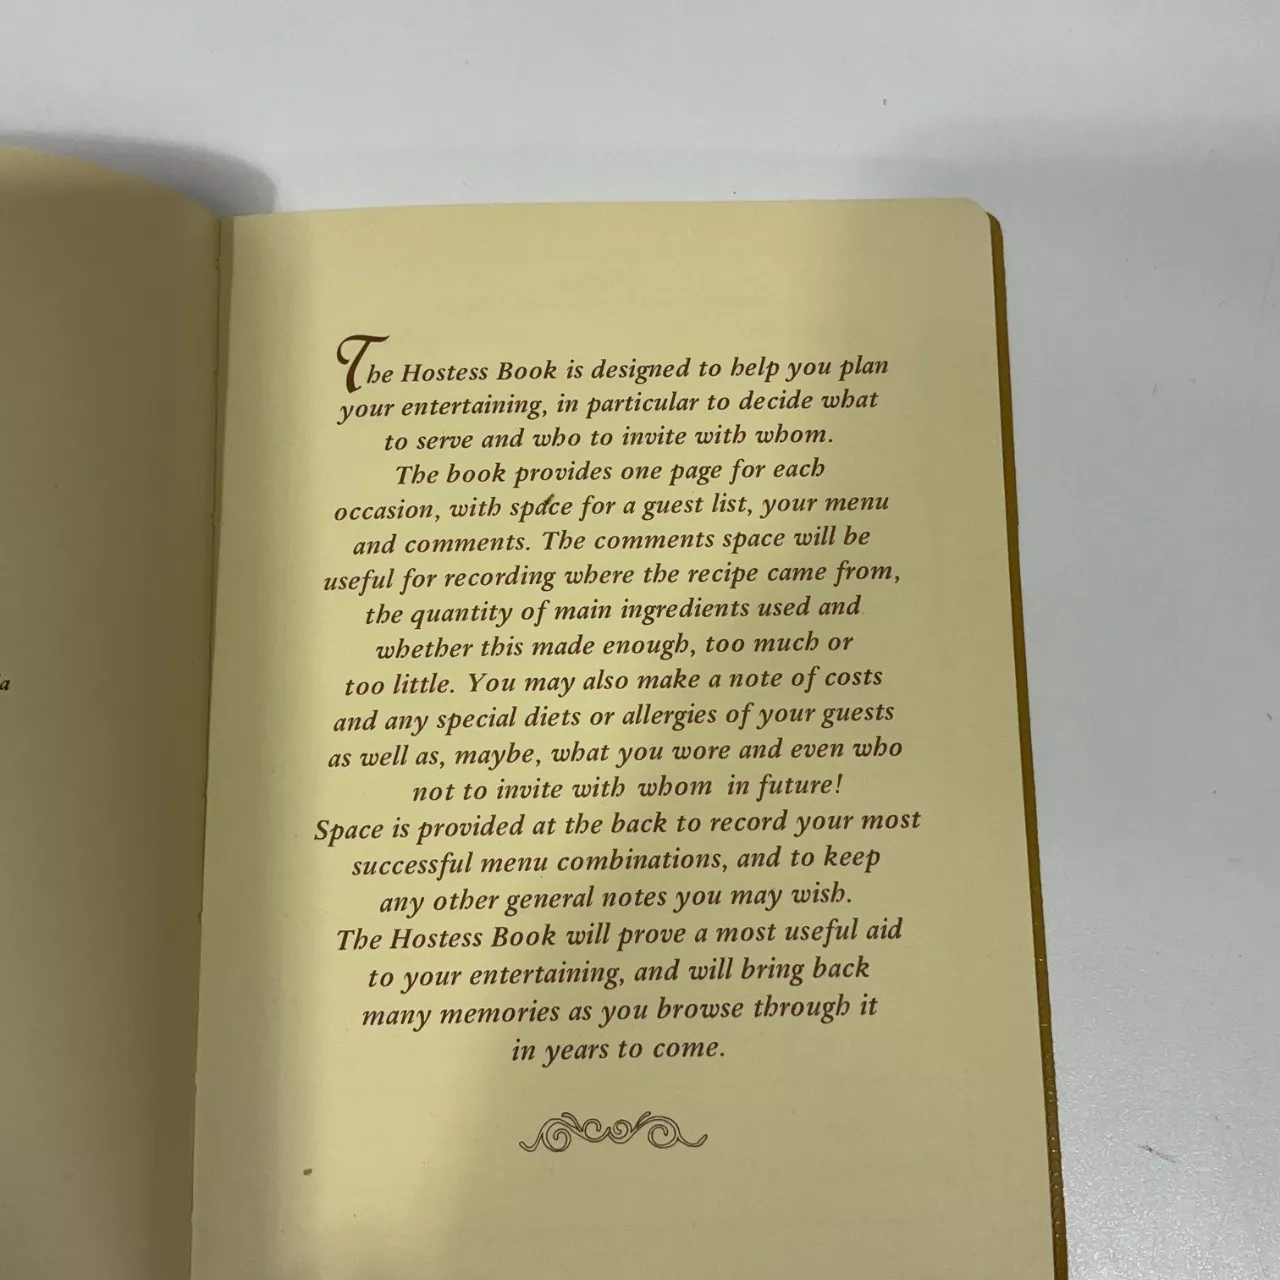 The Hostess Book is designed to help you plan
your entertaining, in particular to decide what
to serve and who to invite with whom.
The book provides one page for each
occasion, with space for a guest list, your menu
and comments. The comments space will be
useful for recording where the recipe came from,
the quantity of main ingredients used and
whether this made enough, too much or
too little. You may also make a note of costs
and any special diets or allergies of your guests
as well as, maybe, what you wore and even who
not to invite with whom in future!
Space is provided at the back to record your most
successful menu combinations, and to keep
any other general notes you may wish.
The Hostess Book will prove a most useful aid
to your entertaining, and will bring back
many memories as you browse through it
in years to come.